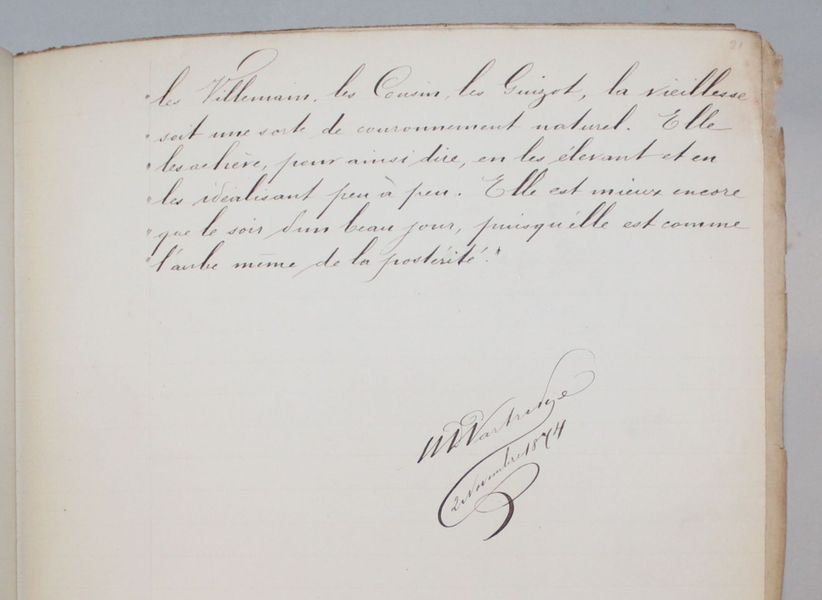 21
"les Villemain, les Cousin, les Guizot, la vieillesse
"soit une sorte de couronnement naturel. Elle
"les achève, pour ainsi dire, en les élevant et en
"les idéalisant peu à peu. Elle est mieux encore
"que le soir d'un beau jour, puisqu'elle est comme
"l'aube même de la postérité."
2 Novembre 1874